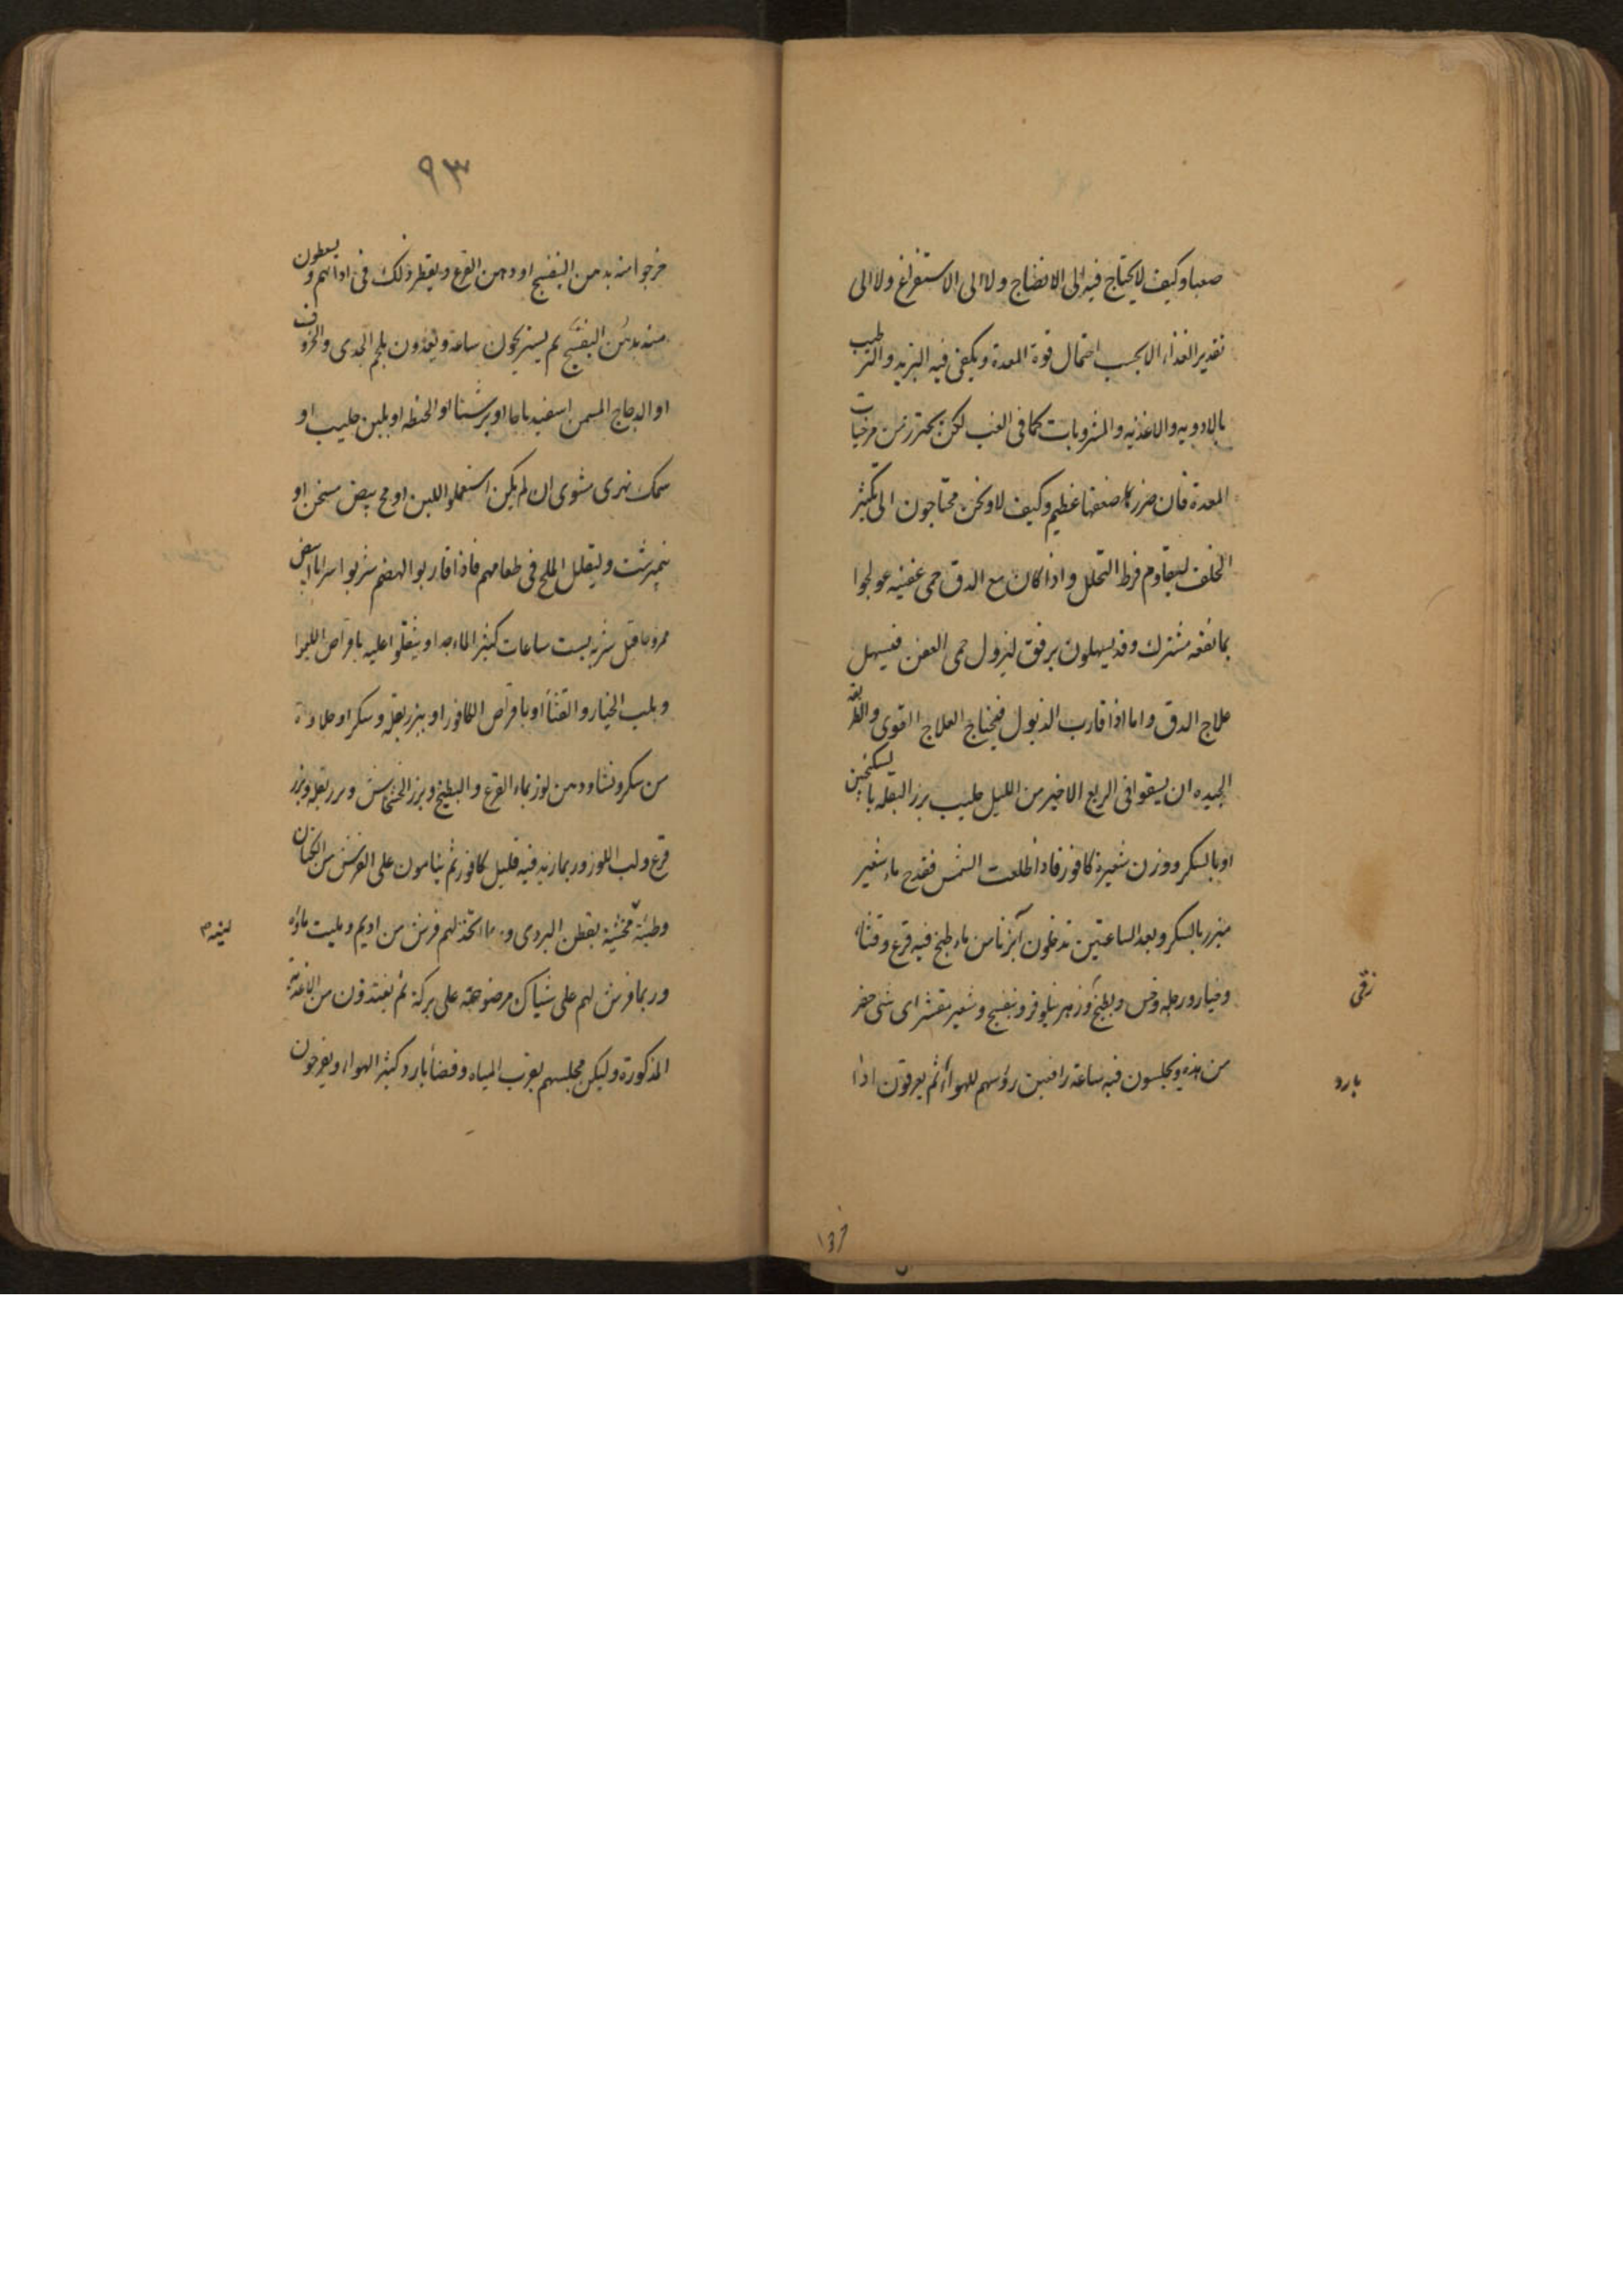 صعبا وكيف لا يحتاج فيه الى الانضاج ولا الى الاستفراغ ولا الى
تقدير الغذاء الا بحسب احتمال قوة المعدة ويكفى فيه التبريد والترطيب
بالادويه والاغذيه والمشروبات كما فى الغب لكن يحترز من مرخيات
المعدة فان ضرر ضعفها عظيم وكيف لا ونحن محتاجون الى تكثير
الخلف ليقاوم فرط التحلل واذا كان مع الدق حمى عفنيه عولجوا
بما نفعه مشترك وقد يسهلون برفق لتزول حمى العفن فيسهل
علاج الدق واما اذا قارب الذبول فيحتاج العلاج القوى والطريقه
الجيده ان يسقوا فى الربع الاخير من الليل حليب بزر البقله بالسكنجبين
او بالسكر ووزن شعيرة كافور فاذا طلعت الشمس فقدح ماء شعير
مبزر بالسكر وبعد الساعتين تدخلون آبزنا من ماء طبخ فيه قرع وقثاء
وخيار ورجله وخس وبطيخ وزهر نيلوفر وبنفسج وشعير مقشر اى شى حضر
من هذه ويجلسون فيه ساعة رافعين رؤسهم للهواء ثم يعرقون اذا
زقى
بارد
٩٣
خرجوا منه بدهن البنفسج او دهن القرع ويقطر ذلك فى اذانهم ويسعطون
منه بدهن البنفسج ثم يستريحون ساعة ويغذون بلحم الجدى والخروف
او الدجاج المسمن اسفيدباجا او برشتا او الحنطه او بلبن حليب او
سمك نهرى مشوى ان لم يكن استعملوا اللبن او مح بيض مسخن او
نيمبرشت وليقلل الملح فى طعامهم فاذا قاربوا الهضم شربوا شرابا ابيض
ممزوجا قبل شربه بست ساعات كثير الماء جدا وينتقلوا عليه باقراص الليموا
وبلب الخيار والقثاء او باقراص الكافور او ببزر بقله وسكر او حلاوة
من سكر ونشا ودهن لوز بماء القرع والبطيخ وبزر الخشخاش وبزر بقله وبزر
قرع ولب اللوز وربما زيد فيه قليل كافور ثم ينامون على الفرش من الكتان
وطيئة محشية بقطن البردى و اتخذ لهم فرش من اديم ومليت ماؤه
وربما فرش لهم على شباك موضوعة على بركة ثم يغتذون من الاغذية
المذكورة وليكن مجلسهم بقرب المياه وفضاء بارد كثير الهواء ويفرحون
لينه